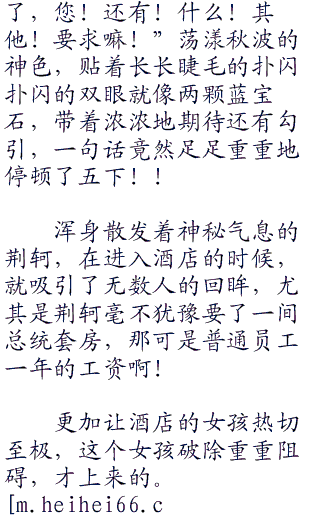 了，您！还有！什么！其
他！要求嘛！”荡漾秋波的
神色，贴着长长睫毛的扑闪
扑闪的双眼就像两颗蓝宝
石，带着浓浓地期待还有勾
引，一句话竟然足足重重地
停顿了五下！！
浑身散发着神秘气息的
荆轲，在进入酒店的时候，
就吸引了无数人的回眸，尤
其是荆轲毫不犹豫要了一间
总统套房，那可是普通员工
一年的工资啊！
更加让酒店的女孩热切
至极，这个女孩破除重重阻
碍，才上来的。
[m.heihei66.c